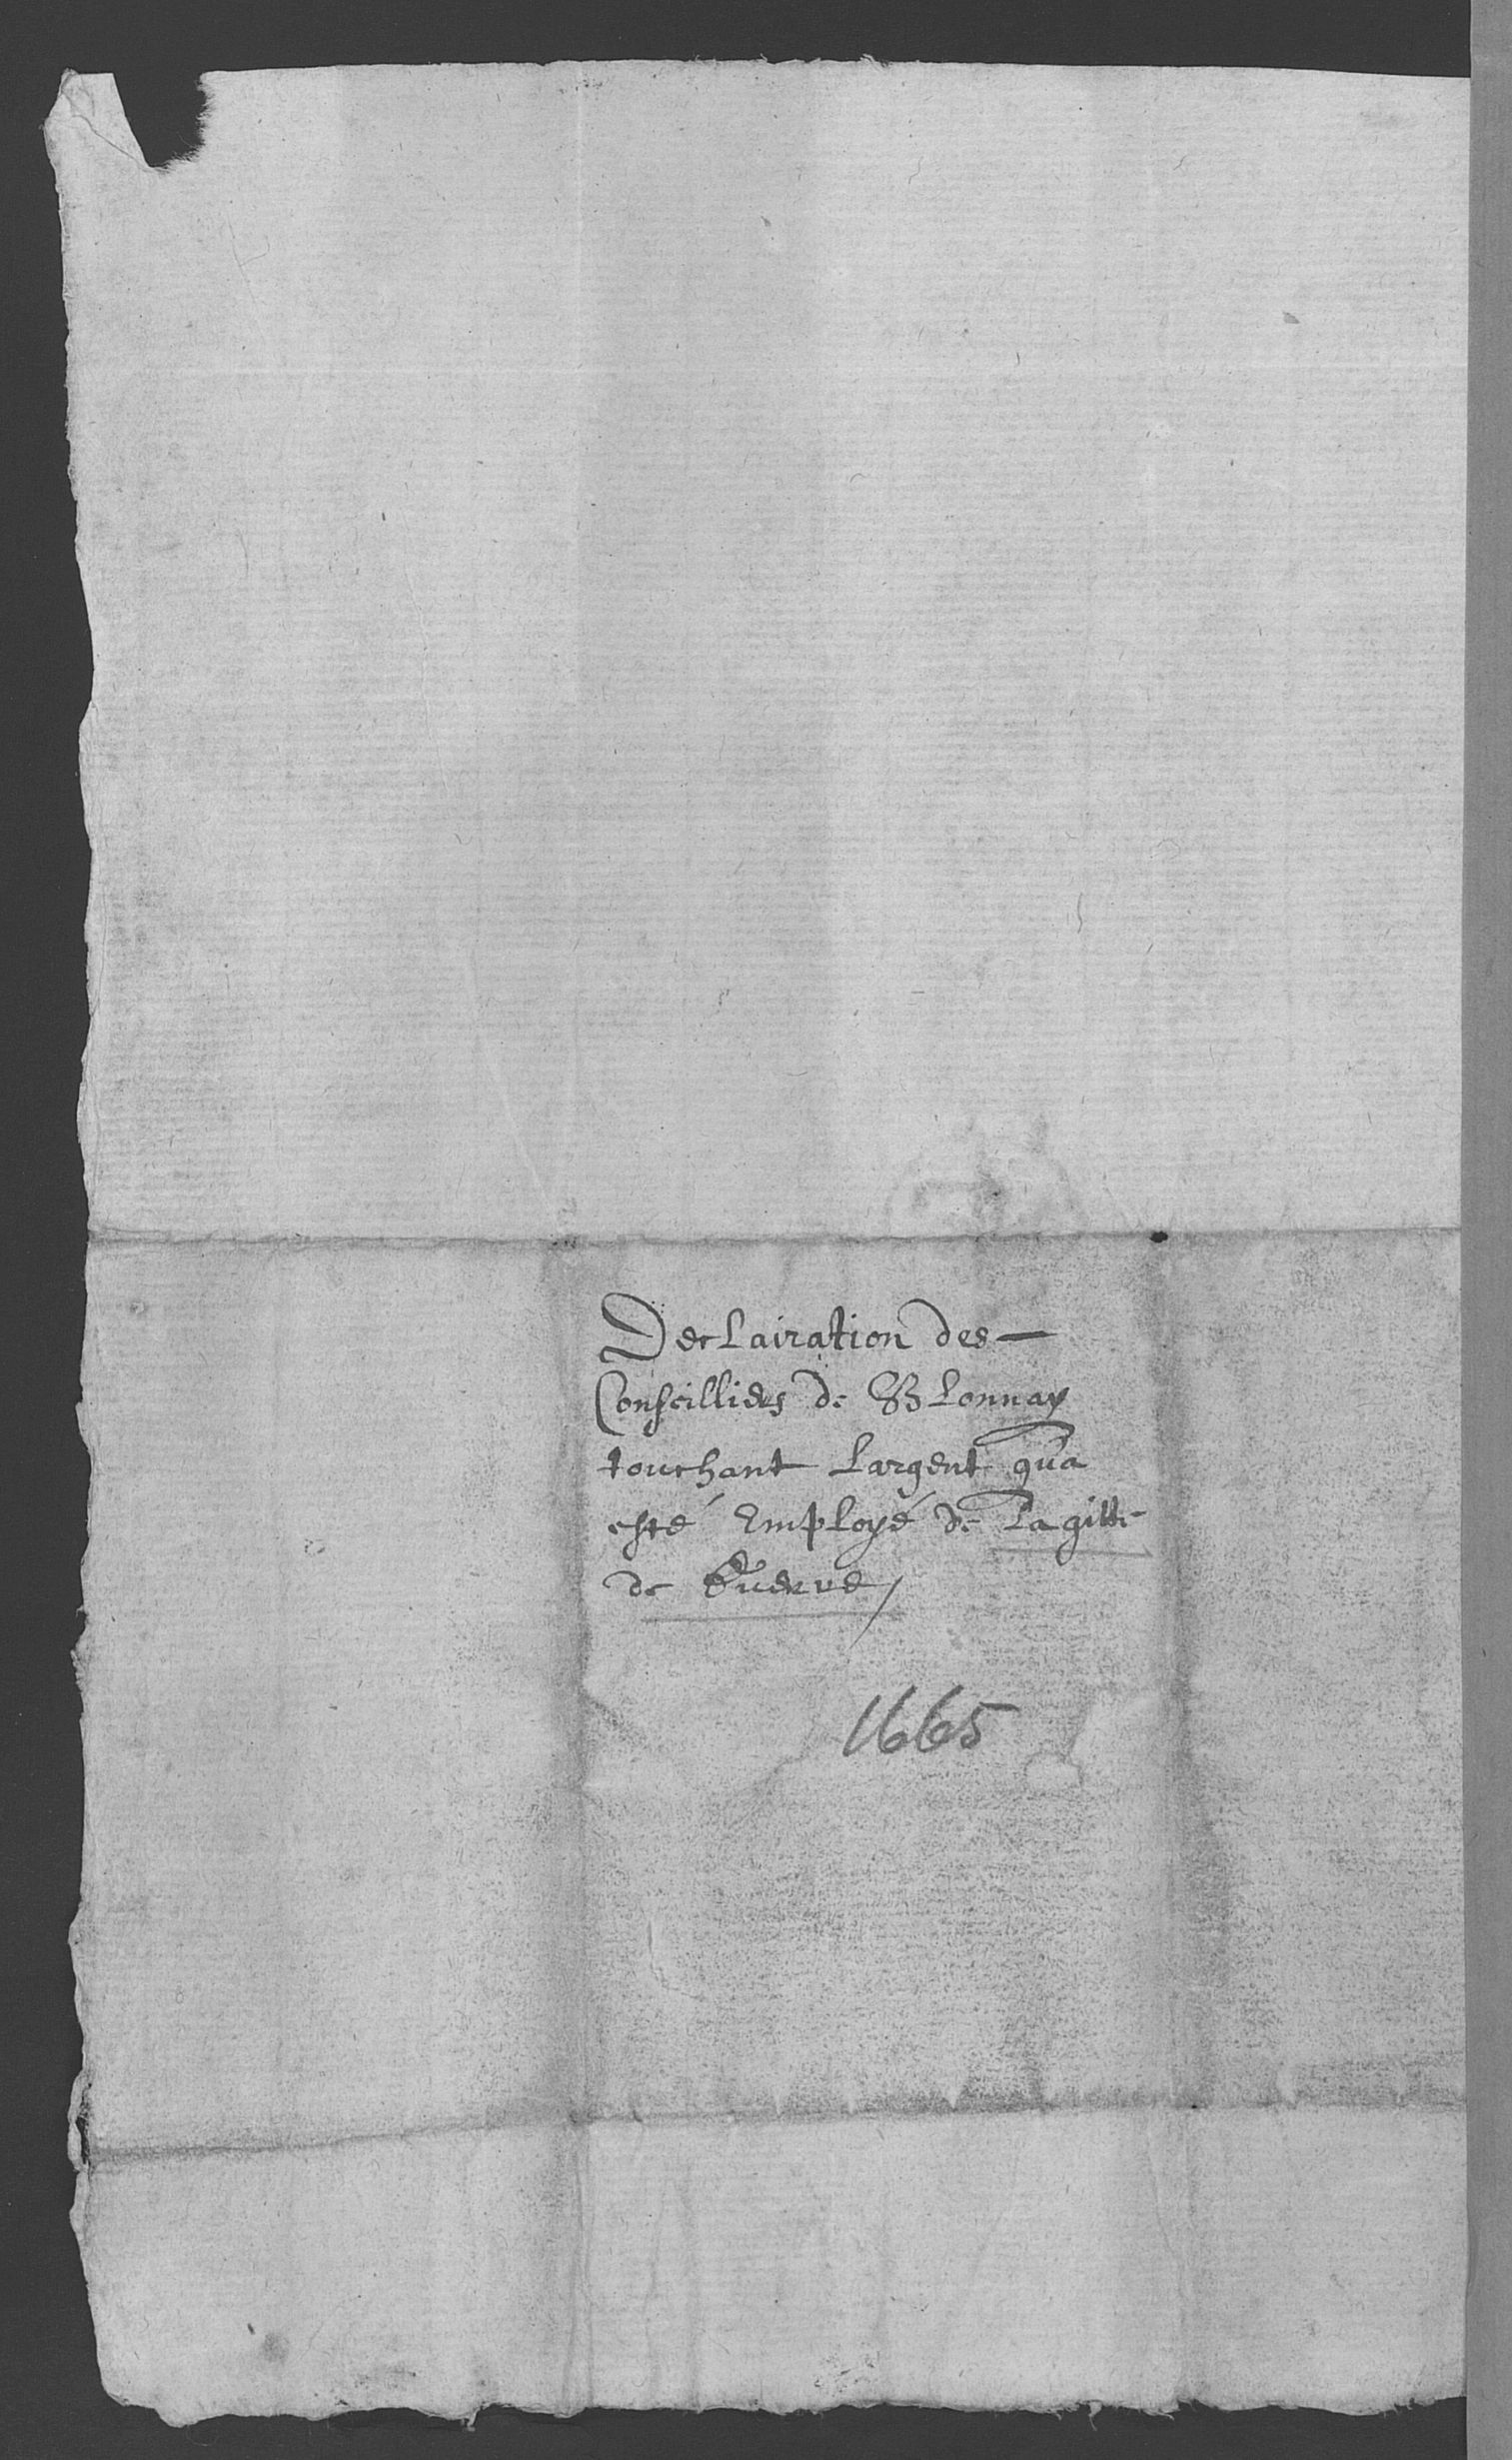 Declairation des —
Conseilliers de Blonnay
touchant Largent qu'a
esté Employé de La gitte
de Guerre /
1665